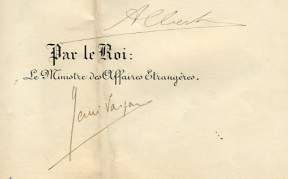 Albert
Par le Roi:
Le Ministre des Affaires Etrangères.